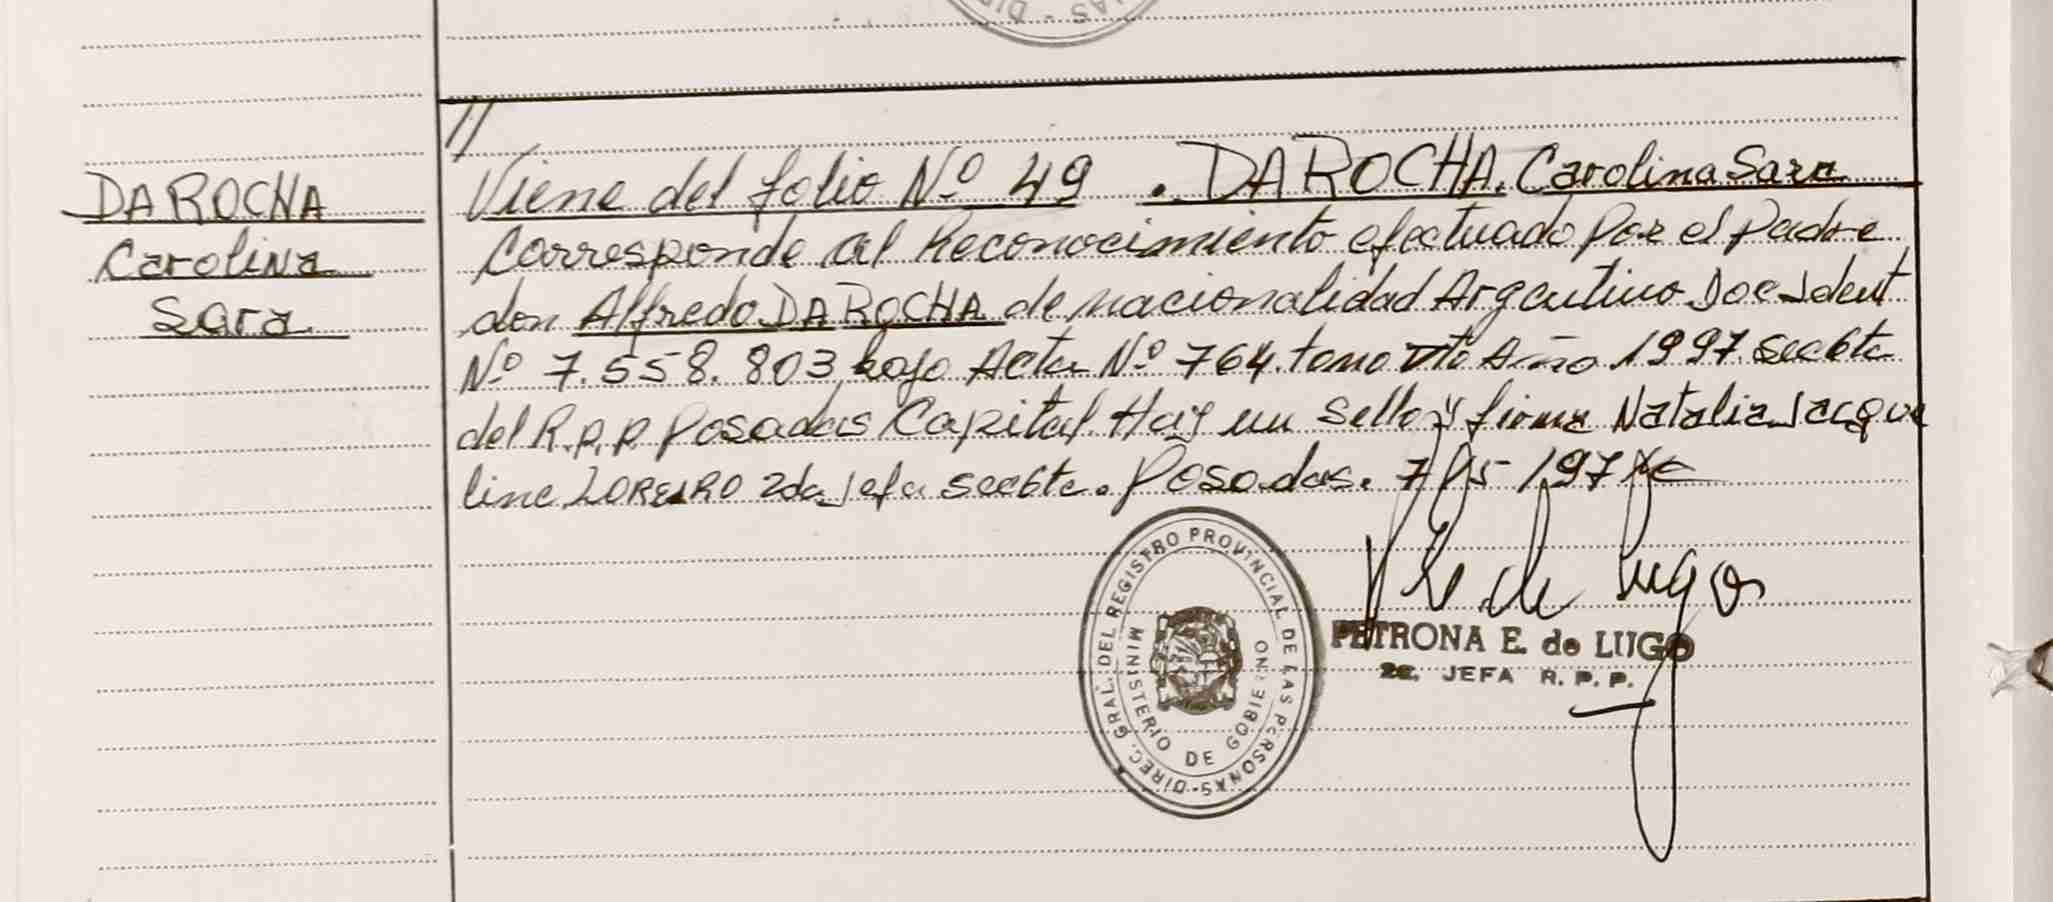 DA ROCHA
Carolina
Sara
//
Viene del folio Nº 49 . DA ROCHA. Carolina Sara
Corresponde al Reconocimiento efectuado por el padre
don Alfredo DA ROCHA de nacionalidad Argentino Doc Ident
Nº 7.558.803 bajo Acta Nº 764. tomo Año 1997. secc 6ta
del R.P.P. Posadas Capital. Hay un sello y firma Natalia Jacque
line LOREIRO 2da Jefa secc 6ta. Posadas.
DIREC. GRAL. DEL REGISTRO PROVINCIAL DE LAS PERSONAS
MINISTERIO DE GOBIERNO
PETRONA E. de LUGO
2a. JEFA R. P. P.